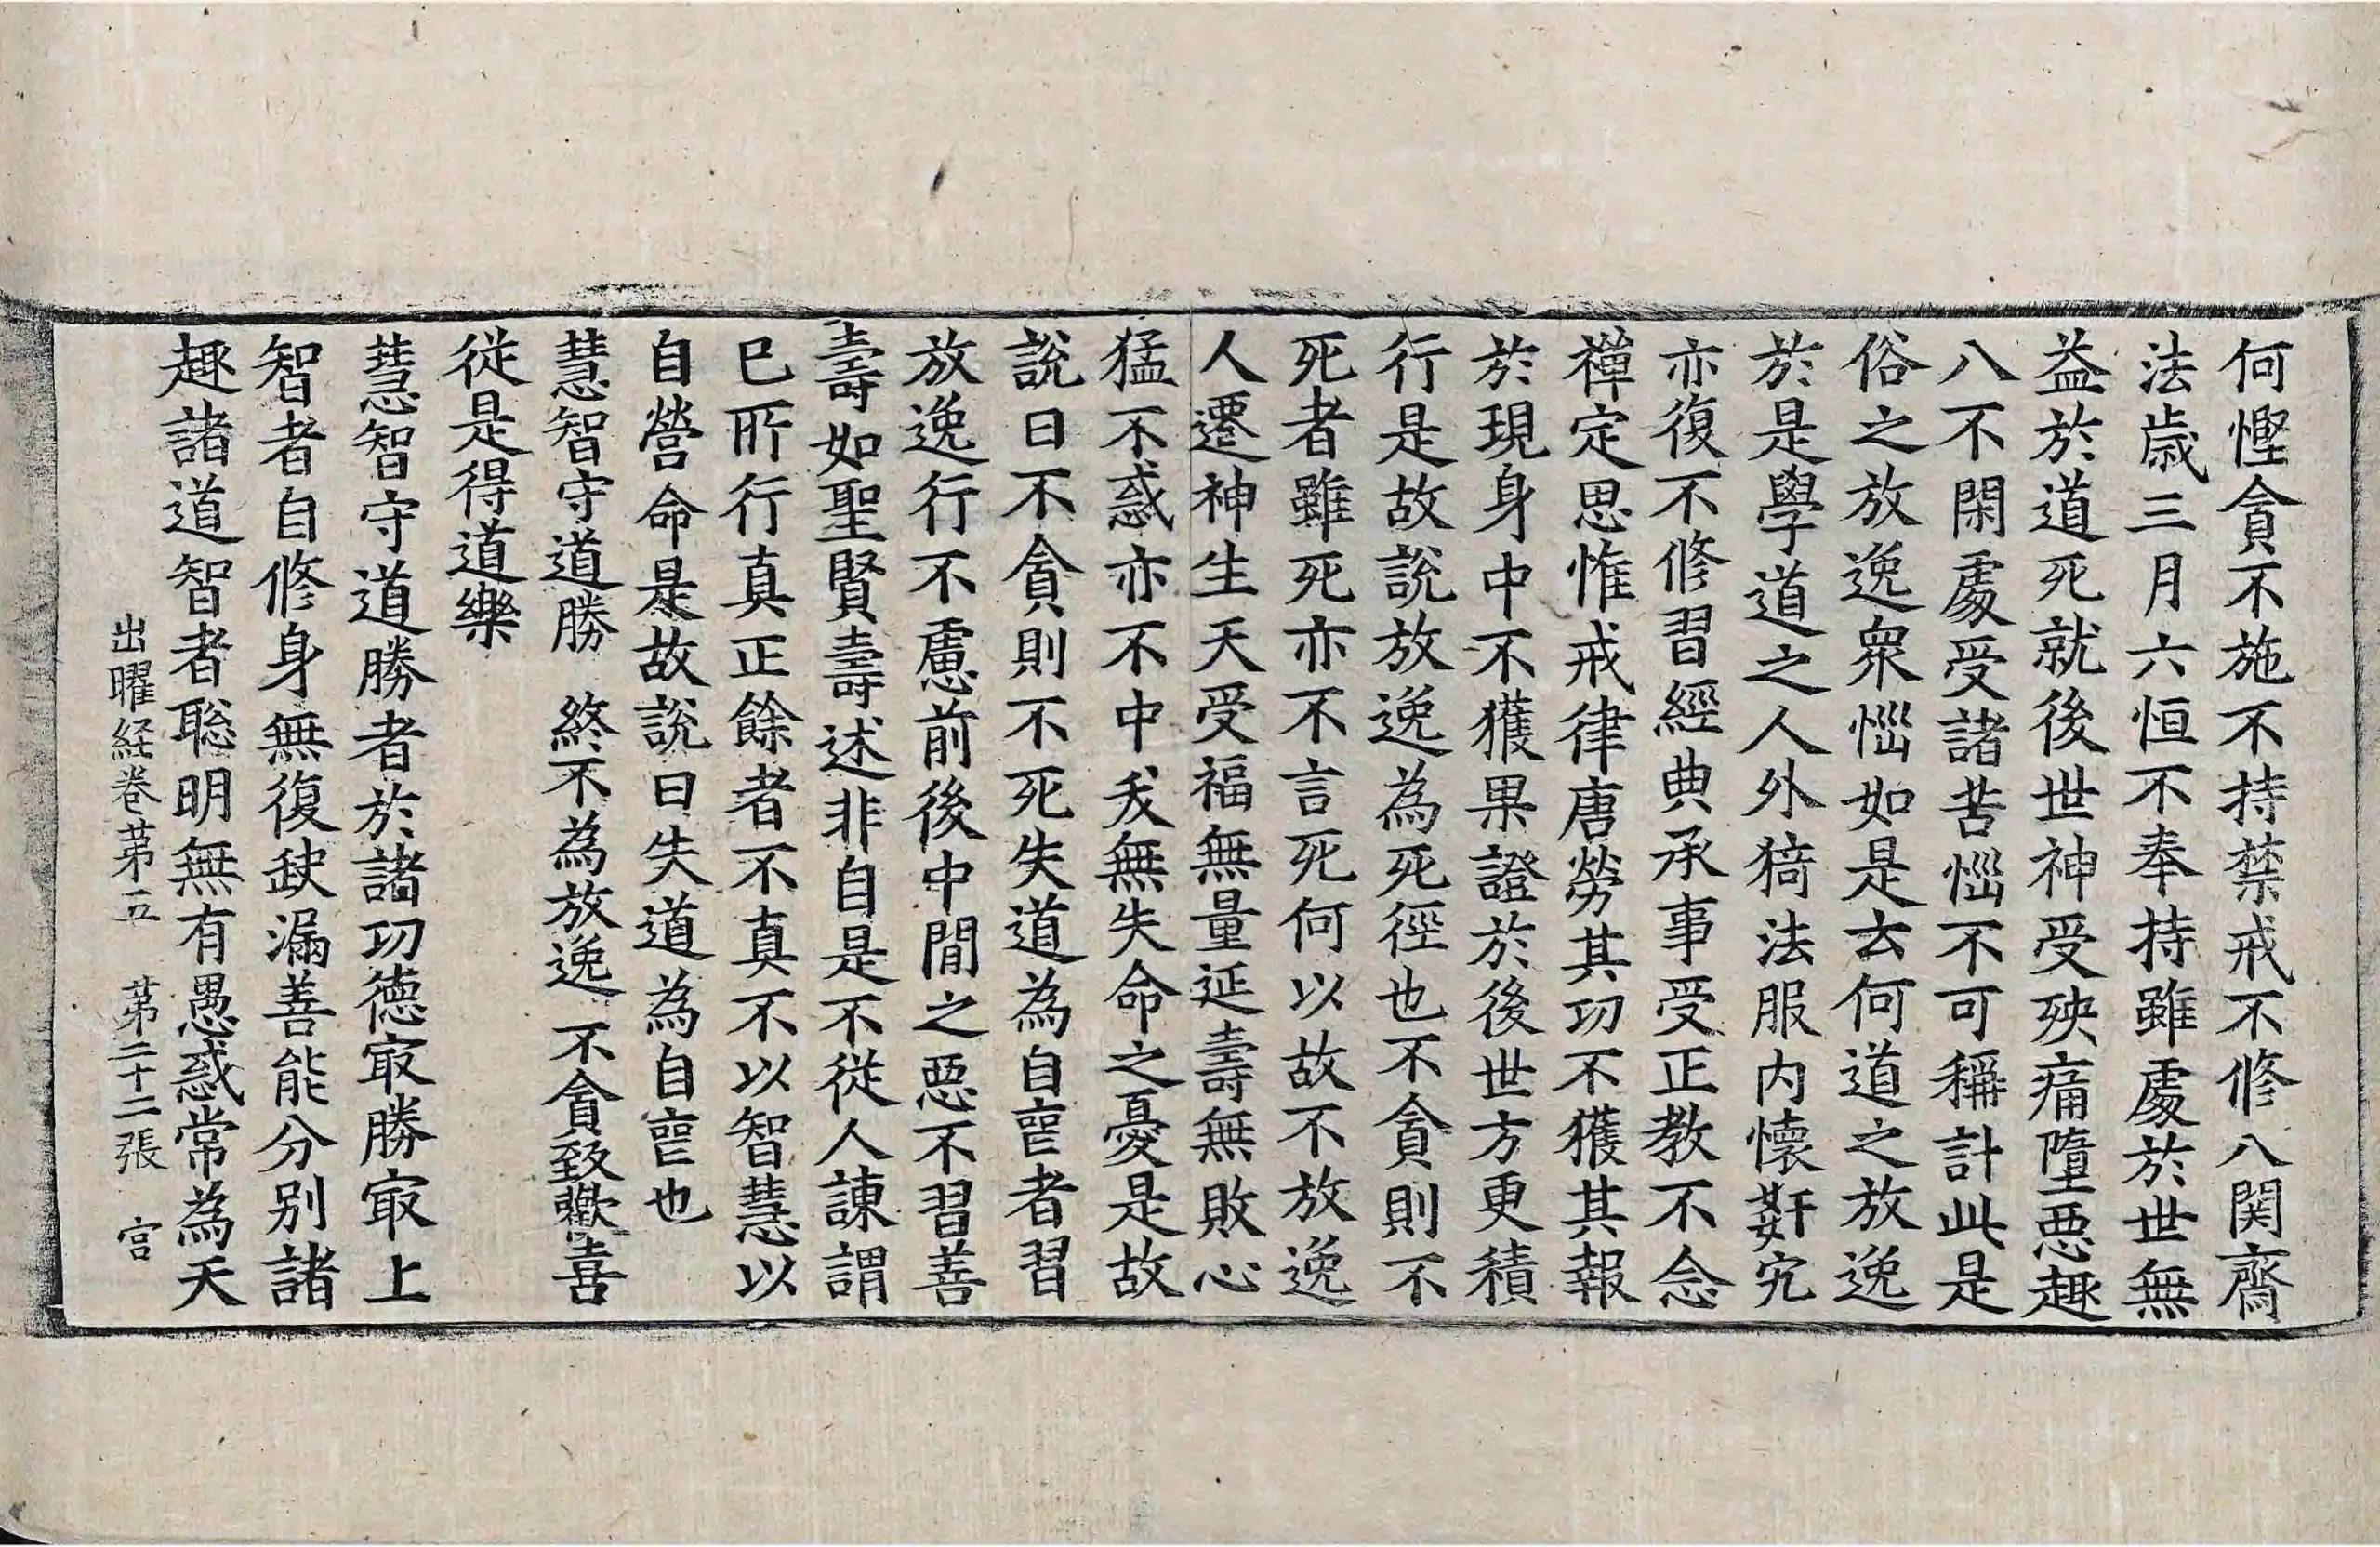 何慳貪不施不持禁戒不修八関齋
法歳三月六恒不奉持雖處於世無
益於道死就後世神受殃痛墮惡趣
八不閑處受諸苦惱不可稱計此是
俗之放逸衆惱如是云何道之放逸
於是學道之人外猗法服内懷姧宄
亦復不修習經典承事受正教不念
禪定思惟戒律唐勞其功不獲其報
於現身中不獲果證於後世方更積
行是故說放逸為死徑也不貪則不
死者雖死亦不言死何以故不放逸
人遷神生天受福無量延壽無敗心
猛不惑亦不中夭無失命之憂是故
說曰不貪則不死失道為自喪者習
放逸行不慮前後中間之惡不習善
壽如聖賢壽述非自是不從人諫謂
已所行真正餘者不真不以智慧以
自營命是故說曰失道為自喪也
慧智守道勝　終不為放逸　不貪致歡喜
從是得道樂
慧智守道勝者於諸功德冣勝冣上
智者自修身無復缺漏善能分別諸
趣諸道智者聡明無有愚惑常為天
出曜経卷苐五　苐二十二張　宫